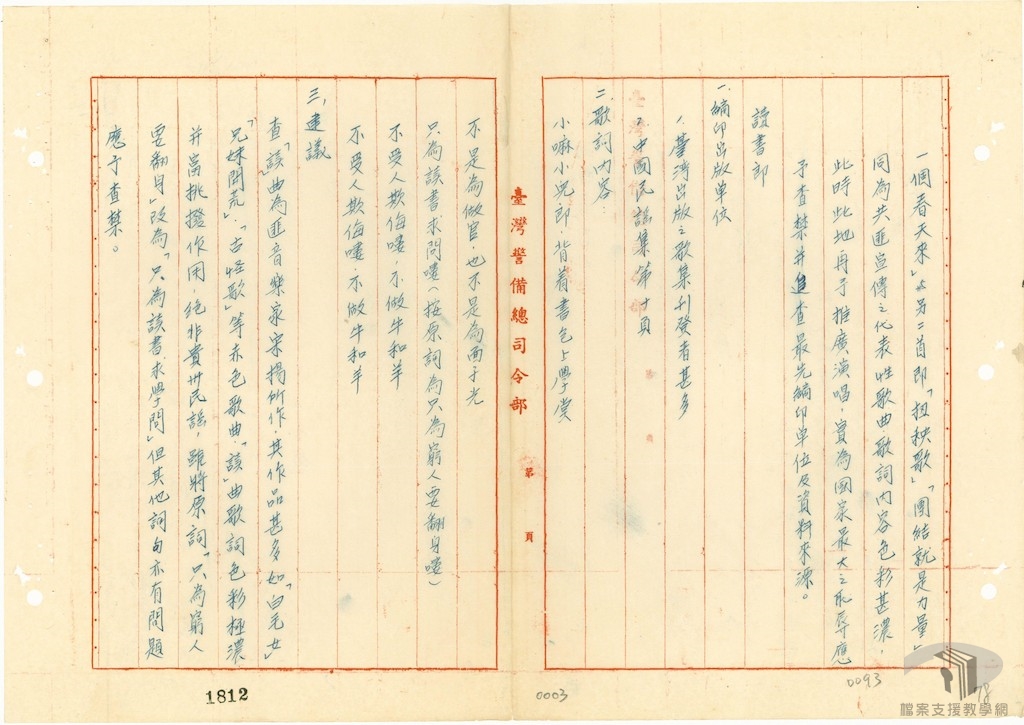 一個春天來」與另二首即「扭秧歌」「團結就是力量」
同為共匪宣傳之代表性歌曲,歌詞內容色彩甚濃,
此時此地再予推廣演唱,實為國家最大之恥辱應
予查禁并追查最先編印單位及資料來源。
讀書郎
一、編印出版單位
1、臺灣出版之歌集刊登者甚多
2、中國民謠集第十頁
二、歌詞內容:
小嘛小兒郎,背着書包上學堂
臺灣警備總司令部
第 頁
不是為做官,也不是為面子光
只為讀書求問嘍(按原詞為只為窮人要翻身嘍)
不受人欺侮嘍,不做牛和羊
不受人欺侮嘍,不做牛和羊
三、建議
查「該」曲為匪音樂家宋揚所作,其作品甚多如「白毛女」
「兄妹開荒」、「古怪歌」等赤色歌曲,「該」曲歌詞色彩極濃
并富挑撥作用,絕非貴州民謠,雖將原詞「只為窮人
要翻身」改為「只為讀書求學問」但其他詞句亦有問題
應予查禁。
1812
0003
0093
78
檔案支援教學網